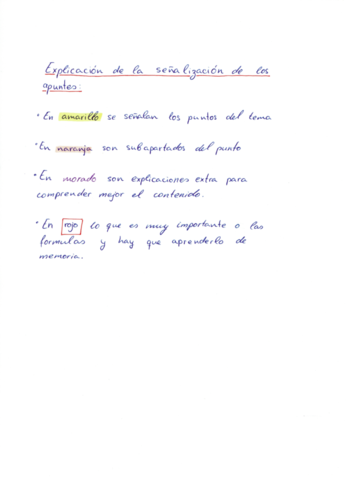 Explicación de la señalización de los
apuntes:
• En amarillo se señalan los puntos del tema
• En naranja son subapartados del punto
• En morado son explicaciones extra para
comprender mejor el contenido.
• En rojo lo que es muy importante o las
formulas y hay que aprenderlo de
memoria.